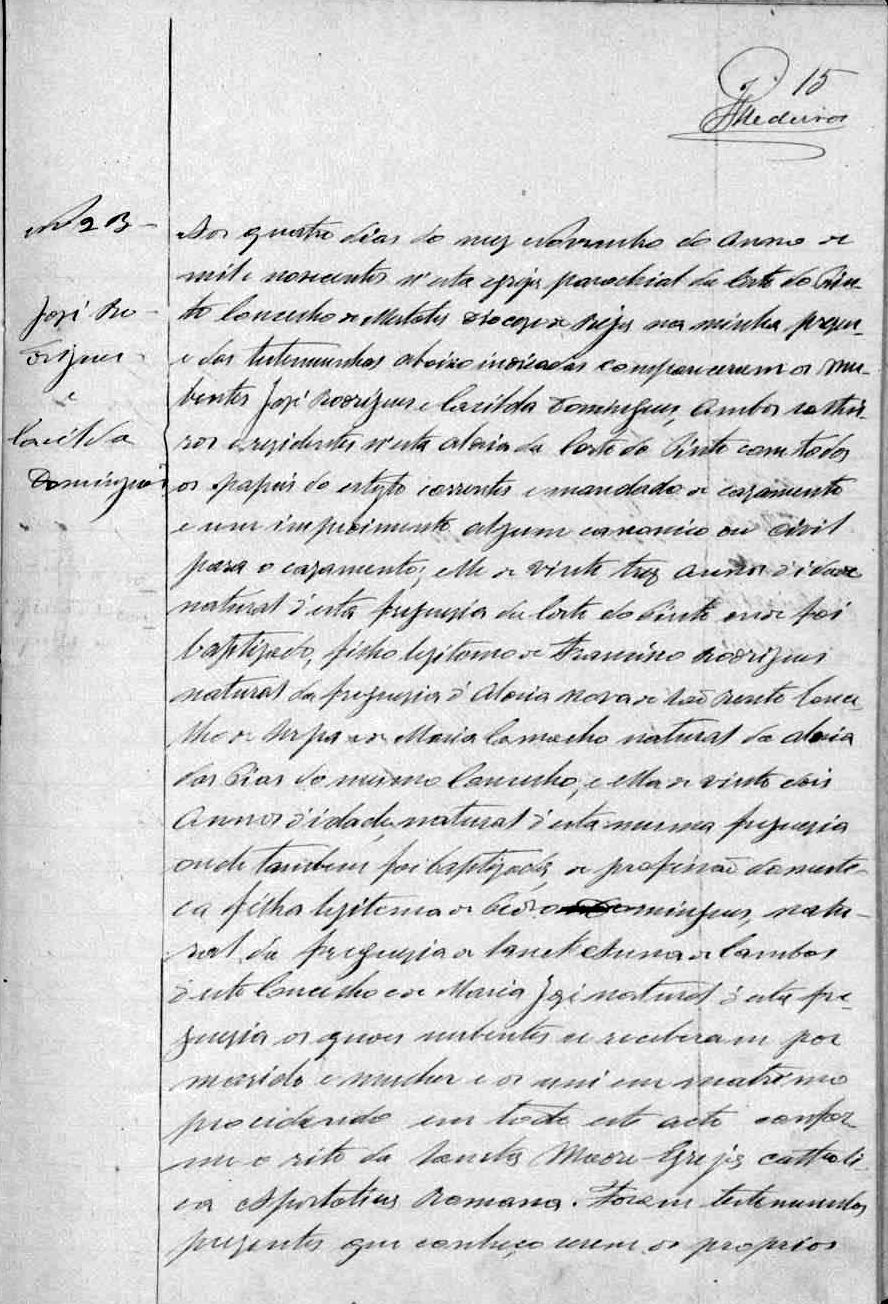 15
Medeiros
Nº 23
José Ro-
drigues
e
Cacilda
Domingues
Aos quatro dias do mez Novembro do Anno de
mil e novecentos n'esta egreja parochial da Corte do Pin-
to Concelho de Mertola Dioceze de Beja na minha prezen-
e das testemunhas abaixo indicadas compareceram os nu-
bentes José Rodrigues e Cacilda Domingues, ambos soltei-
ros e rezidentes n'esta aldeia da Corte do Pinto com todos
os papeis do estylo correntes e mandado de cazamento
e sem impedimento algum canonico ou civil
para o cazamento; elle de vinte trez annos d'idade
natural d'esta freguezia da Corte do Pinto onde foi
baptizado, filho legitimo de Francisco Rodrigues
natural da freguezia d'Aldeia nova de São Bento Conce-
lho de Serpa e de Maria Camacho natural da aldeia
dos Pias do mesmo Concelho, e ella de vinte dois
Annos d'idade, natural d'esta mesma freguezia
onde tambem foi baptizada, de profissão domesti-
ca filha legitima de Pedro Domingues, natu-
ral da freguezia de Sanct'Anna de Cambas
d'este Concelho e de Maria José natural d'esta fre-
guezia os quaes nubentes se receberam por
marido e mulher e os uni em matrimo
procedendo em todo este acto confor-
me o rito da Sancta Madre Egreja cathóli-
ca Apostolica Romana. Foram testemunhas
prezentes que conheço serem os proprios